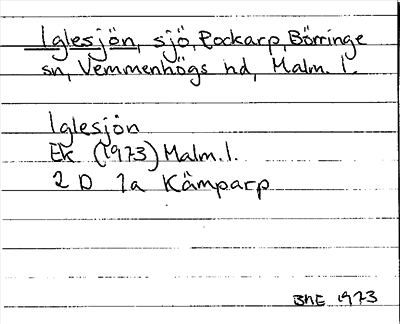 Iglesjön, sjö, Rockarp, Börringe
sn, Vemmenhögs hd, Malm. l.
Iglesjön
Ek (1973) Malm. l.
2 D 1a Kämparp
BhE 1973